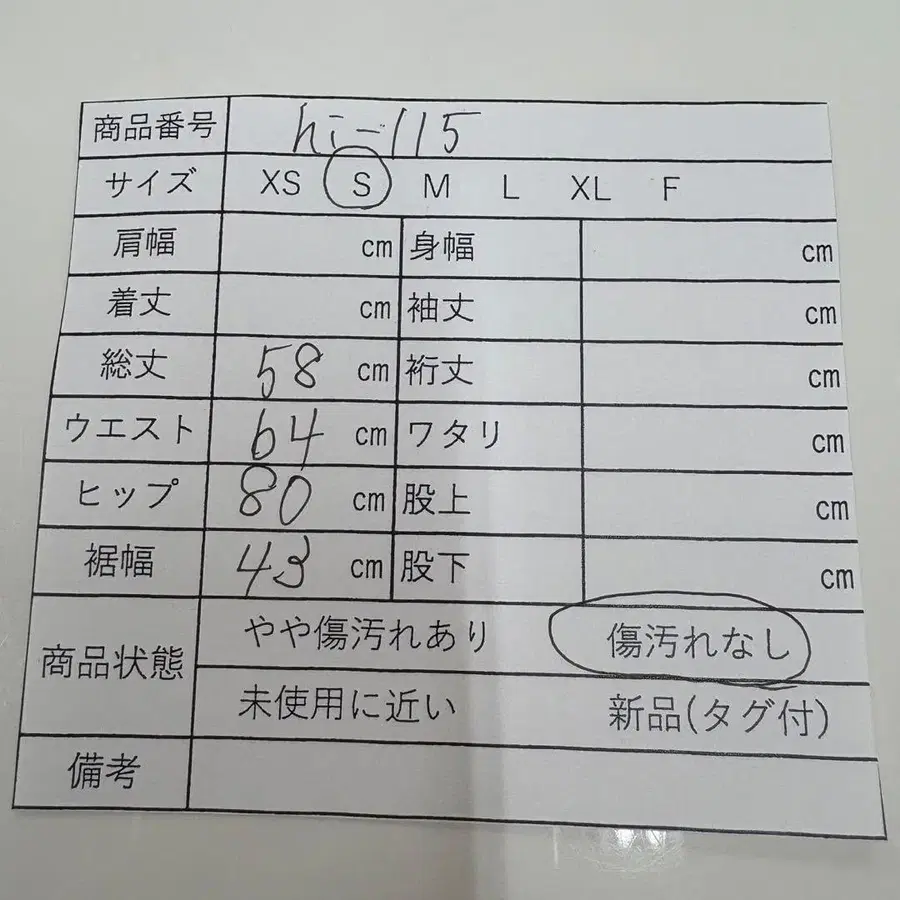 商品番号 hi-115
サイズ XS S M L XL F
肩幅 cm 身幅 cm
着丈 cm 袖丈 cm
総丈 58 cm 裄丈 cm
ウエスト 64 cm ワタリ cm
ヒップ 80 cm 股上 cm
裾幅 43 cm 股下 cm
商品状態 やや傷汚れあり 傷汚れなし
未使用に近い 新品(タグ付)
備考